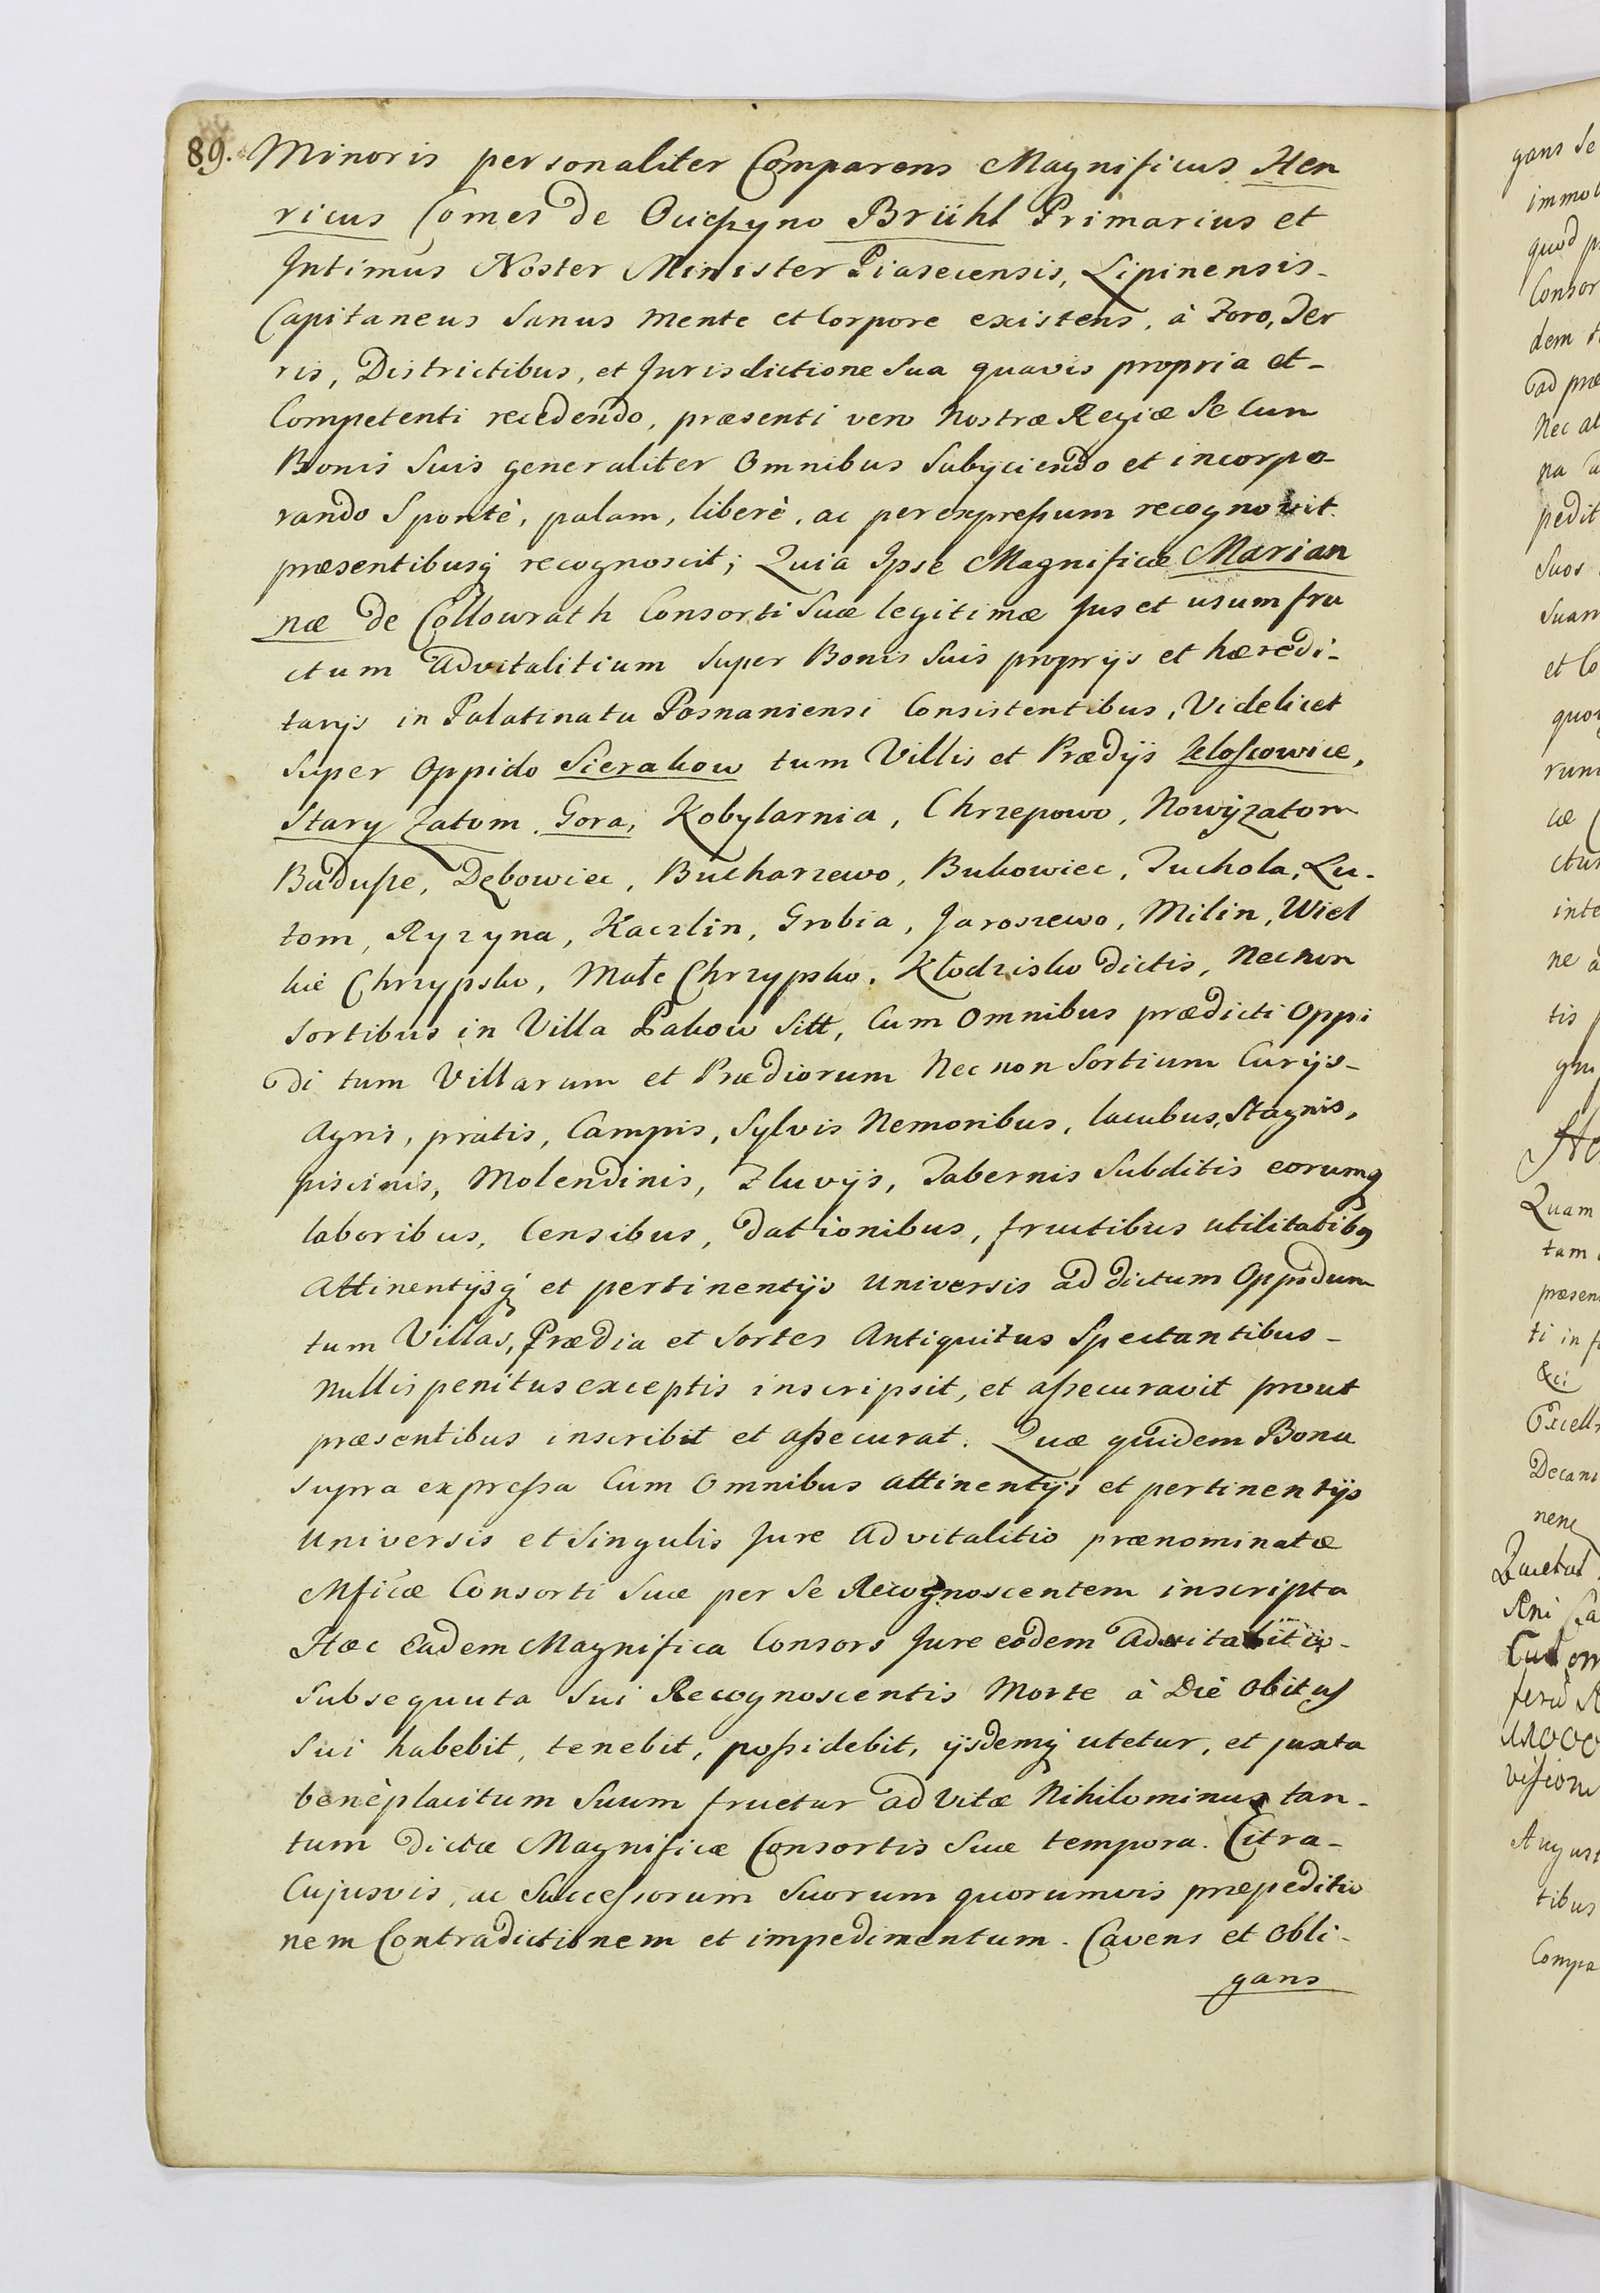 89. Minoris personaliter Comparens Magnificus Hen
ricus Comes de Ocieszyno Brühl Primarius et
Intimus Noster Minister Piasecensis, Lipinensis-
Capitaneus Sanus mente et Corpore existens, à Foro, Ter
ris, Districtibus, et Jurisdictione Sua quavis propria et-
Competenti recedendo, præsenti vero Nostræ Regiæ Se Cum
Bonis Suis generaliter Omnibus Subyciendo et incorpo-
rando Spontè, palam, liberè, ac per expressum recognovit
præsentibusq recognoscit; Quia Ipse Magnificæ Marian
næ de Collowrath Consorti Suæ legitimæ Jus et usumfru
ctum Advitalitium Super Bonis Suis proprijs et hæredi-
tarijs in Palatinatu Posnaniensi Consistentibus, Videlicet
Super Oppido Sierakow tum Villis et Prædijs
Stary Zatom, Gora, Kobylarnia, Chrzepowo, Nowy Zatom
Badusze, Dębowiec, Bucharzewo, Bukowiec, Tuchola, Lu-
tom, Ryzyna, Kaczlin, Grobia, Jaroszewo, Milin, Wiel
kie Chrzypsko, Małe Chrzypsko, Kłodzisko dictis, Necnon
Sortibus in Villa Pakow Sitt, Cum Omnibus prædicti Oppi
di tum Villarum et Prædiorum Nec non Sortium Curijs-
Agris, pratis, Campis, Sylvis Nemoribus, lacubus, Stagnis,
piscinis, Molendinis, Fluvijs, Tabernis Subditis eorumq
laboribus, Censibus, dationibus, fructibus utilitatibq
Attinentijsq et pertinentijs Universis ad dictum Oppidum
tum Villas, Prædia et Sortes Antiquitus Spectantibus-
Nullis penitus exceptis inscripsit, et assecuravit prout
præsentibus inscribit et assecurat. Quæ quidem Bona
supra expressa Cum Omnibus attinentijs et pertinentijs
Universis et Singulis Jure Advitalitio prænominatæ
Mficæ Consorti Suæ per Se Recognoscentem inscripta
Hæc Eadem Magnifica Consors Jure eodem Advitalitio-
Subsequuta Sui Recognoscentis Morte à Diè Obitus
Sui habebit, tenebit, possidebit, ijsdemq utetur, et juxta
benèplacitum Suum fruetur ad Vitæ Nihilominus tan-
tum dictæ Magnificæ Consortis Suæ tempora. Citra-
Cujusvis, ac Successorum Suorum quorumvis præpeditio
nem Contradictionem et impedimentum. Cavens et Obli-
gans
gans Se
quod
Consor
dem
ad præ
Nec al
pedit
Suos
Suam
et Co
inte
tis
Quam
tam
præsen
ti in
Decan
nene
Augus
tibus
Compa